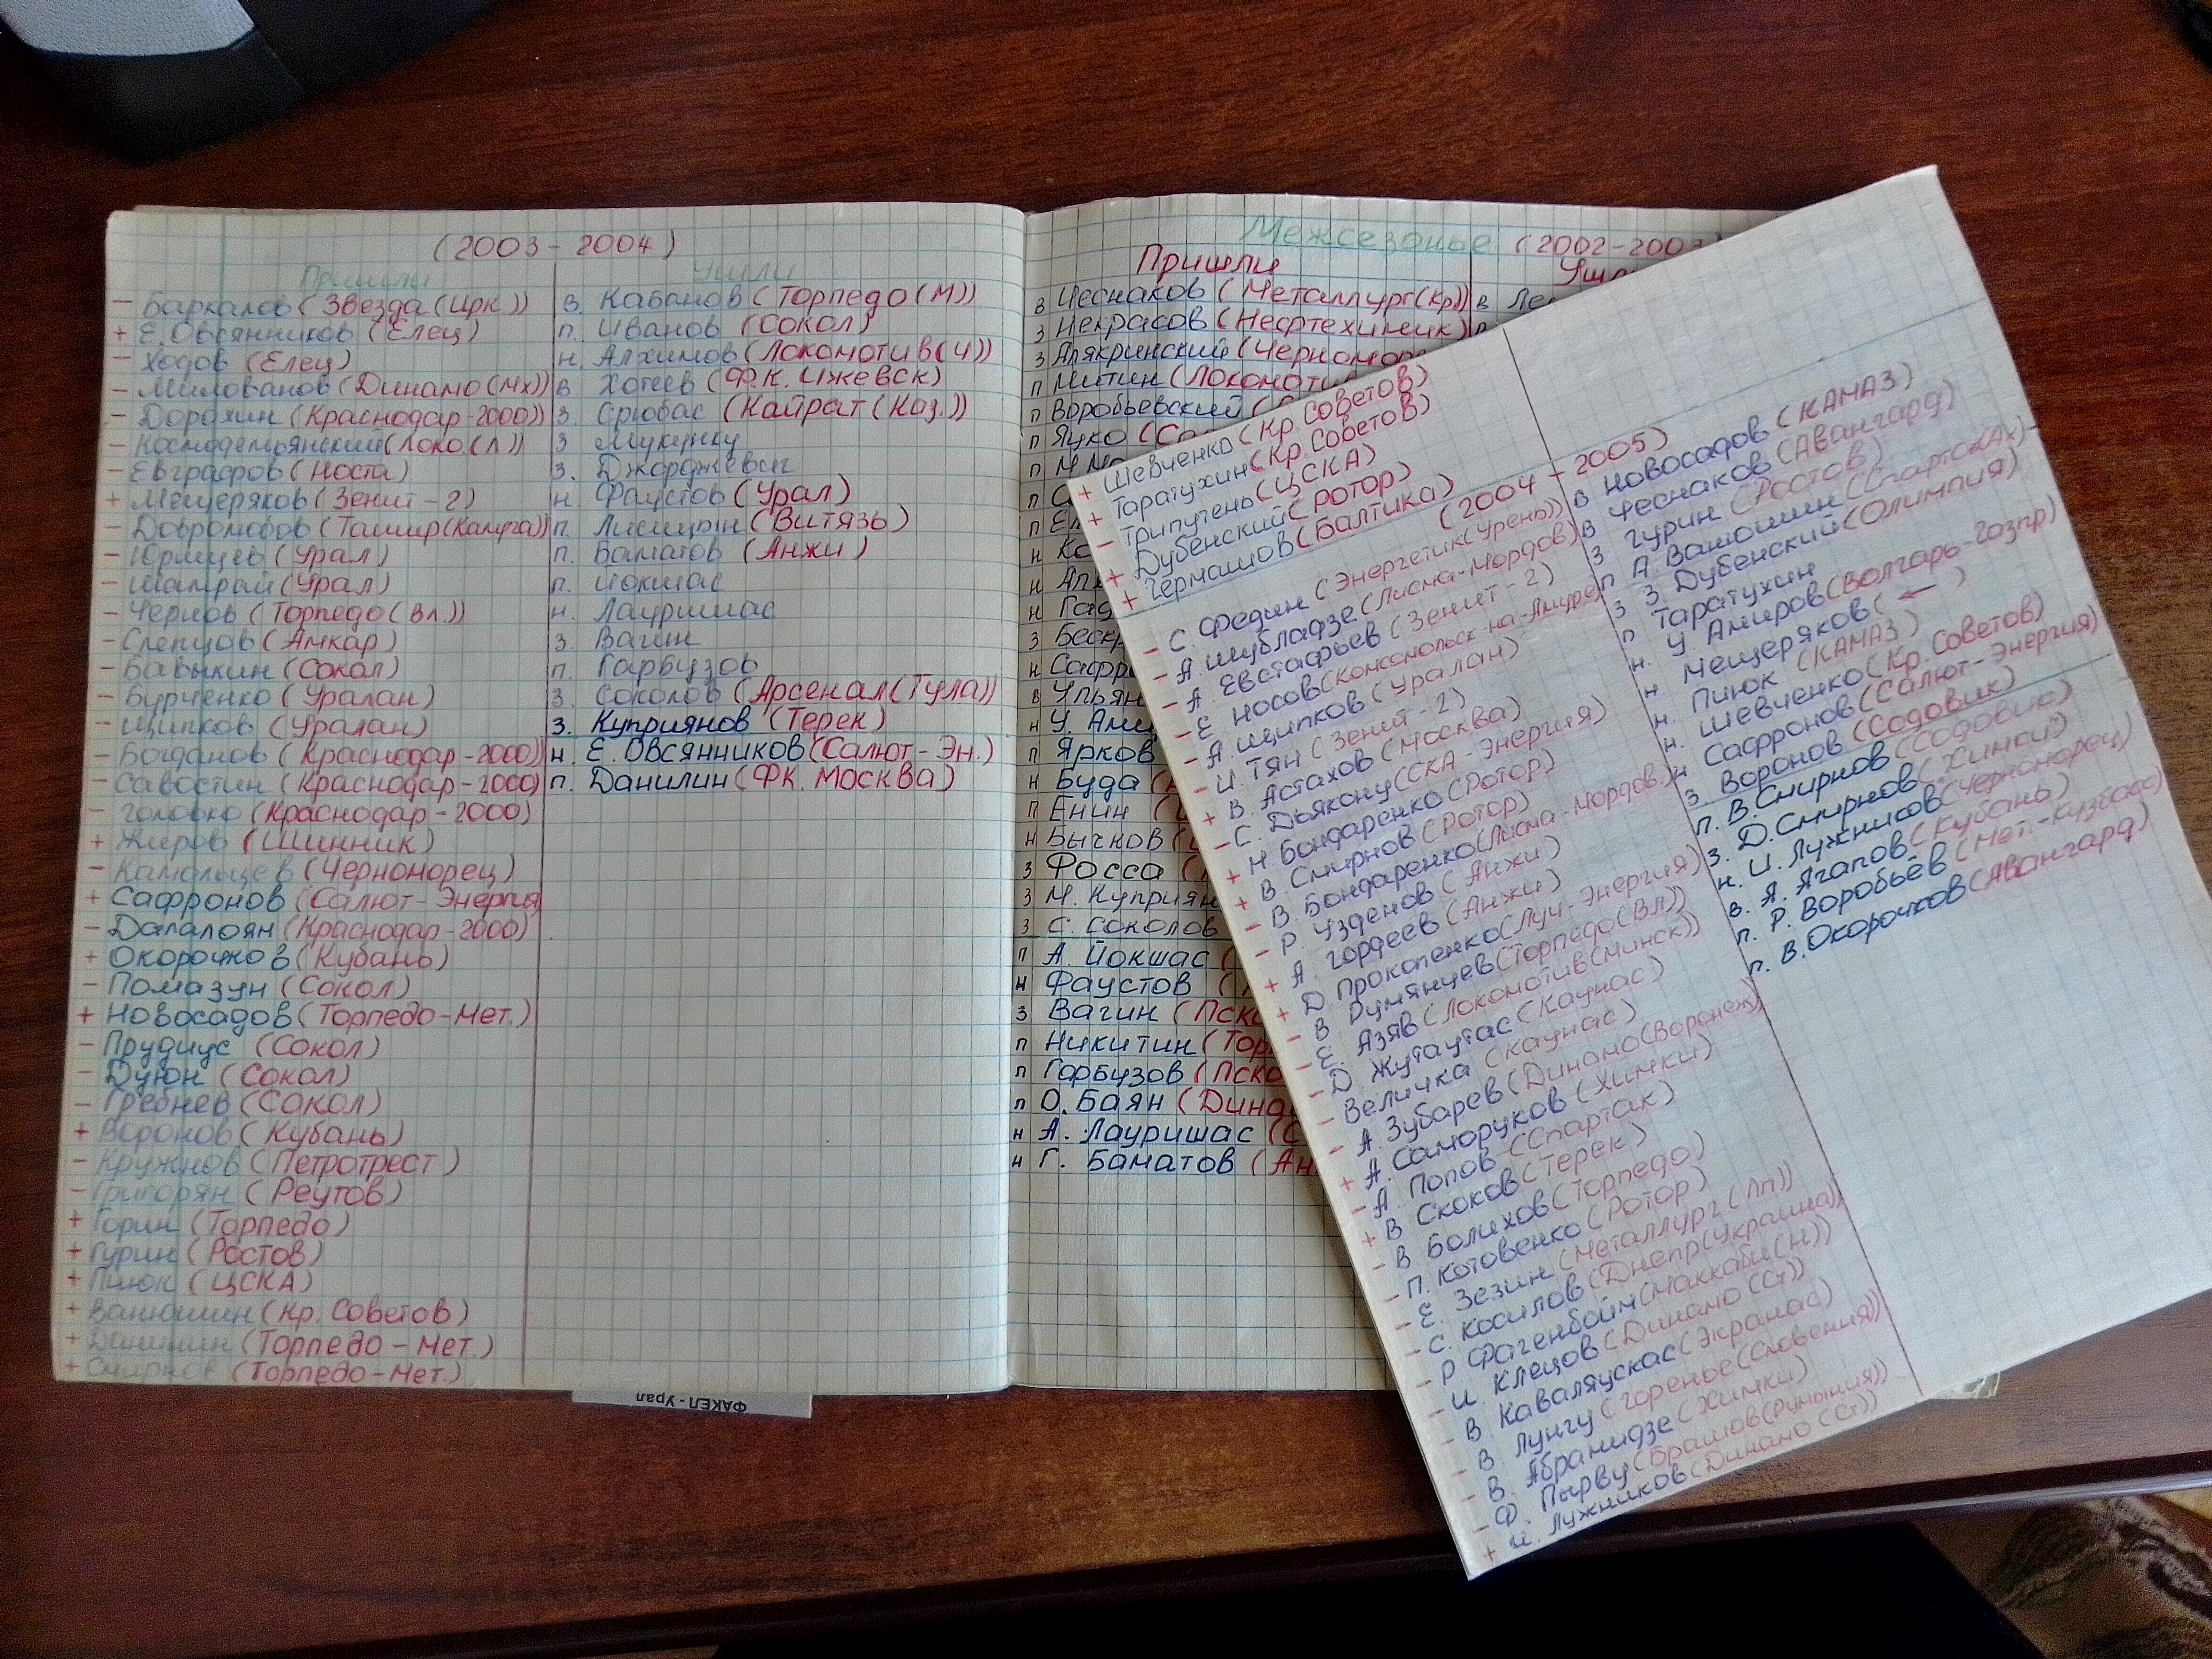 (2003-2004)
Пришли
- Баркалов (Звезда (Ирк.))
+ Е. Овсянников (Елец)
- Ходов (Елец)
- Милованов (Динамо (Мх))
- Дорохин (Краснодар-2000))
- Космодемьянский (Локо. (Л))
- Евграфов (Носта)
+ Мещеряков (Зенит-2)
- Добролюбов (Ташир (Калуга))
- Юрмцев (Урал)
- Шатрай (Урал)
- Чернов (Торпедо (Вл.))
- Слепцов (Амкар)
- Бавыкин (Сокол)
- Бурченко (Уралан)
- Щипков (Уралан)
- Богданов (Краснодар-2000))
- Савостин (Краснодар-2000)
- Головко (Краснодар-2000)
+ Жиров (Шинник)
- Камольцев (Черноморец)
+ Сафронов (Салют-Энергия
- Далалоян (Краснодар-2000)
+ Окорочков (Кубань)
- Помазун (Сокол)
+ Новосадов (Торпедо-Мет.)
- Прудиус (Сокол)
- Дуюн (Сокол)
- Гребнев (Сокол)
+ Воронов (Кубань)
- Кружнов (Петротрест)
- Григорян (Реутов)
+ Горин (Торпедо)
+ Гурин (Ростов)
+ Пиюк (ЦСКА)
+ Ванюшин (Кр. Советов)
+ Данилин (Торпедо-Мет.)
+ Смирнов (Торпедо-Мет.)
Ушли
В. Кабанов (Торпедо (М))
П. Иванов (Сокол)
Н. Алхимов (Локомотив (Ч))
В Хотеев (Ф.К. Ижевск)
З. Срюбас (Кайрат (Каз.))
З Мукунку
З. Джорджевич
Н. Фаустов (Урал)
П. Лисицын (Витязь)
П. Баматов (Анжи)
П. Йокшас
Н. Лауришас
З. Вагин
П. Гарбузов
З. Соколов (Арсенал (Тула))
З. Куприянов (Терек)
Н. Е. Овсянников (Салют-Эн.)
П. Данилин (ФК. Москва)
ФАКЕЛ - Урал
Межсезонье (2002-2003
Пришли
В Чеснаков (Металлург (Кр))
З Некрасов (Нефтехимик)
З Алякринский (Черномор
П Митин (Локомоти
П Воробьевский (
П Яцко (Со
П
П
П
Н
Н
Н
З
Н Сафр
В Ульян
Н У. Ами
П Ярков
Н Буда (
П Енин (
Н Бычков (
З Фосса (
З М. Куприян
З С. Соколов
П А. Йокшас (
Н Фаустов (
З Вагин (Пско
П Никитин (Тор
П Горбузов (Пско
П О. Баян (Дина
Н А. Лауришас (С
Н Г. Баматов (Ан
В
+ Шевченко (Кр. Советов)
+ Таратухин (Кр. Советов)
- Трипутень (ЦСКА)
+ Дубенский (Ротор)
+ Гермашов (Балтика)
(2004-2005)
- С. Федин (Энергетик (Урень))
- А. Шубладзе (Лисма-Мордов)
- А. Евстафьев (Зенит-2)
- Е Носов (Комсомольск-на-Амуре)
- А. Щипков (Уралан)
- И Тян (Зенит-2)
+ В. Астахов (Москва)
- С. Дьякону (СКА-Энергия)
+ Н Бондаренко (Ротор)
+ В. Смирнов (Ротор)
- В. Бондаренко (Лисма-Мордов.)
- Р. Узденов (Анжи)
+ А. Гордеев (Анжи)
+ Д. Прокопенко (Луч-Энергия)
- В Румянцев (Торпедо (Вл))
- Е. Азяв (Локомотив (Минск))
- Д. Жутаутас (Каунас)
- Величка (Каунас)
- А. Зубарев (Динамо (Воронеж)
+ А. Саморуков (Химки)
- А. Попов (Спартак)
+ В Скоков (Терек)
- В Болихов (Торпедо)
- П. Котовенко (Ротор)
- Е. Зезин (Металлург (Лп))
- С. Косилов (Днепр (Украина))
- Р Фагенбойм (Маккаби (Н))
- И Клецов (Динамо (Ст))
- В Каваляускас (Экранас)
- В Лунгу (Горенье (Словения))
- В. Абрамидзе (Химки)
- Ф. Пырву (Брашов (Румыния))
+ И. Лужников (Динамо (Ст))
В Новосадов (КАМАЗ)
В Чеснаков (Авангард)
З Гурин (Ростов)
П А Ванюшин (Спартак (Ах)
З З. Дубенский (Олимпия)
П Таратухин
Н. У Амиров (Волгарь-Газпр)
Н Мещеряков ( ← )
Н. Пиюк (КАМАЗ)
Н. Шевченко (Кр. Советов)
Н Сафронов (Салют-Энергия)
З. Воронов (Содовик)
П. В. Смирнов (Содовик)
З. Д. Смирнов ("Химки")
Н. И. Лужников (Черноморец)
В. А. Агапов (Кубань)
П. Р. Воробьёв (Мет.-Кузбасс)
П. В. Окорочков (Авангард)